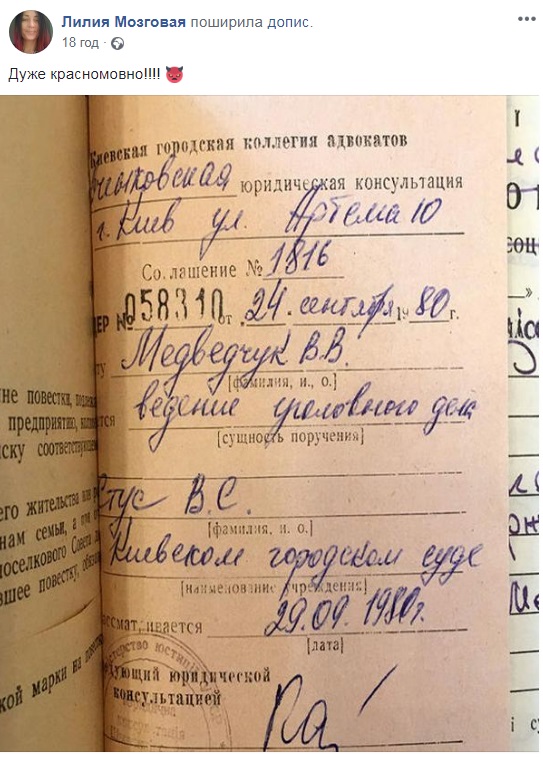 Лилия Мозговая поширила допис.
18 год ·
Дуже красномовно!!!!
Киевская городская коллегия адвокатов
юридическая консультация
г. Киев ул. Артема 10
Со лашение № 1816
ДЕР № 058310 от „24„ сентября 1980 г.
ту Медведчук В.В.
[фамилия, и., о.]
ется ведение уголовного дела
[сущность поручения]
Стус В.С.
[фамилия, и. о.]
Киевском городском суде
[наименование учреждения]
ассмат,ивается 29.09.1980г.
[дата]
едующий юридической
консультацией
не повестки, подлежа
предприятию,
иску соответствующем
его жительства или
нам семьи, а
поселкового Совета
вшее повестку, обязан
кой марки на повестке